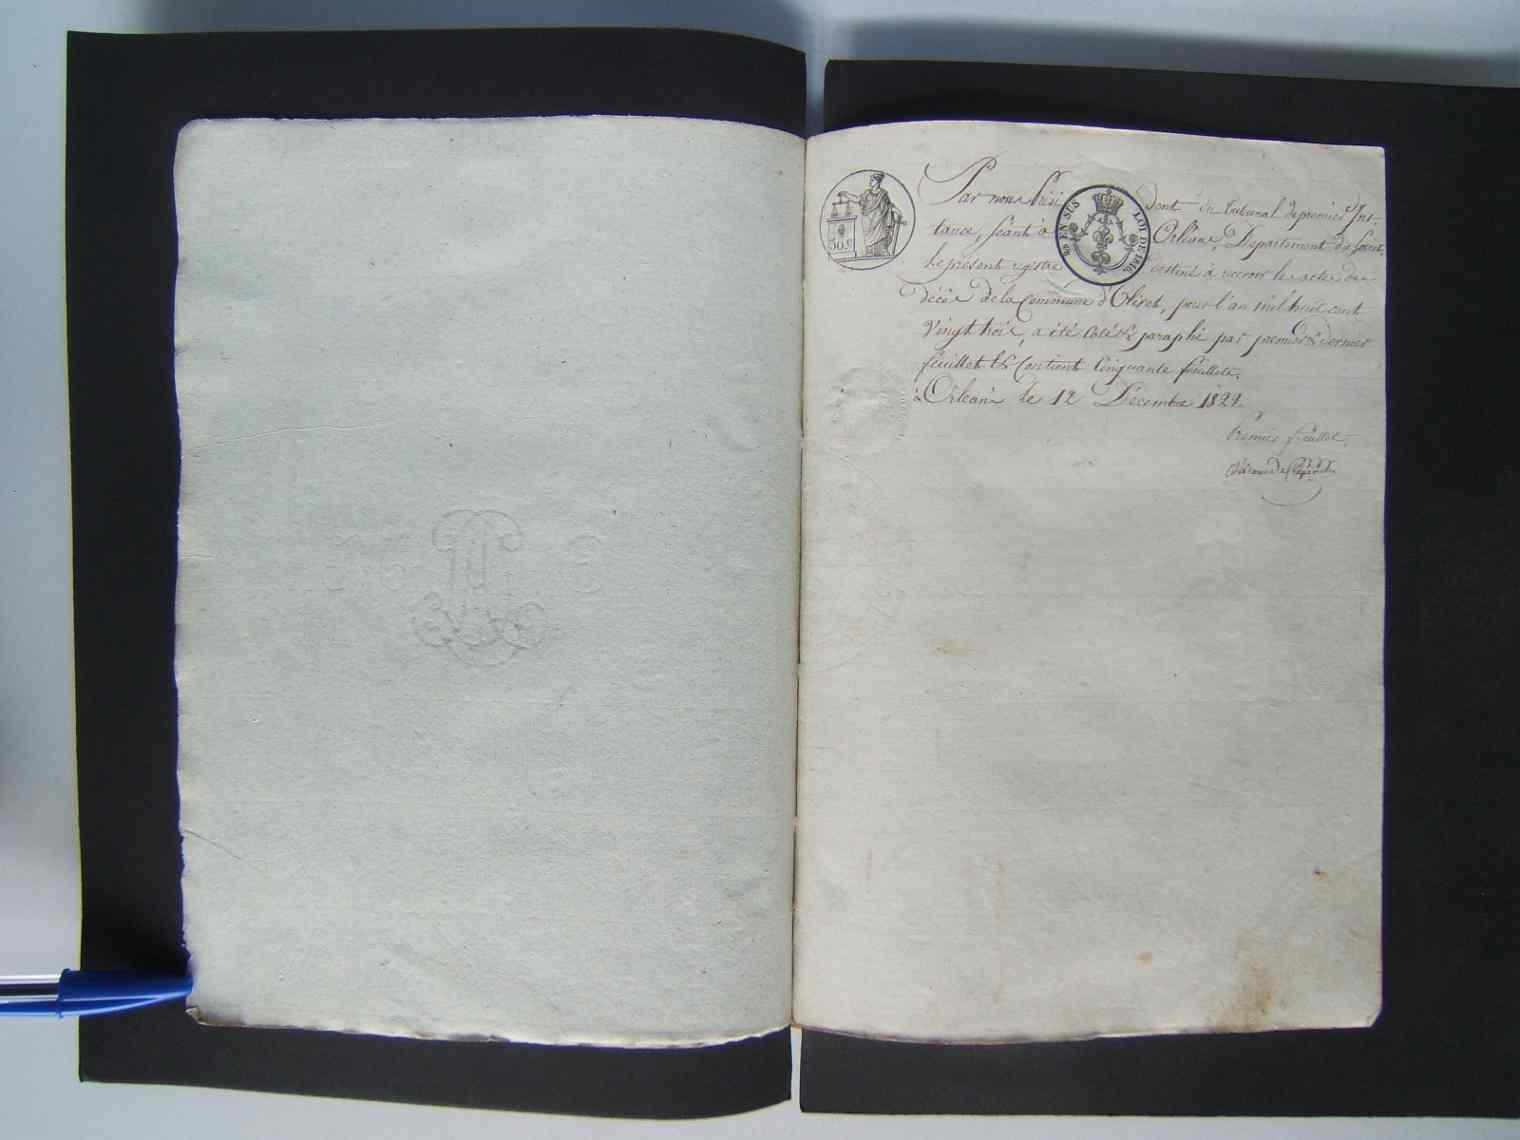 50C.
EN SUS
LOI DE 1816
Par nous Président du tribunal de premier Ins-
tance, séant à Orléans, Département du Loiret,
le présent registre destiné à recevoir les actes de
décès de la Commune d'Olivet, pour l'an mil huit cent
vingt trois, a été coté & paraphé par premier & dernier
feuillet & Contient Cinquante feuillets.
à Orléans le 12 Décembre 1822.
Premier feuillet.